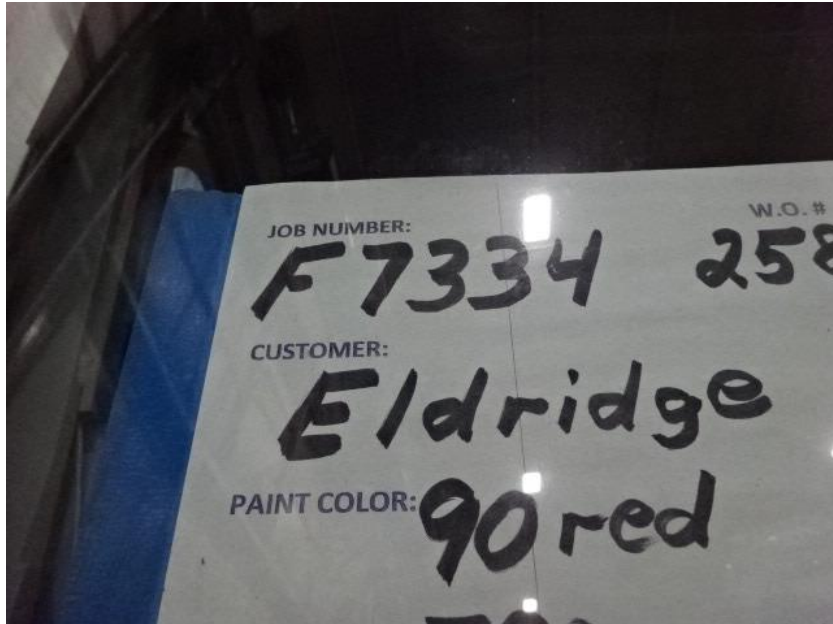 JOB NUMBER: W.O. #
F7334 258
CUSTOMER:
Eldridge
PAINT COLOR: 90 red